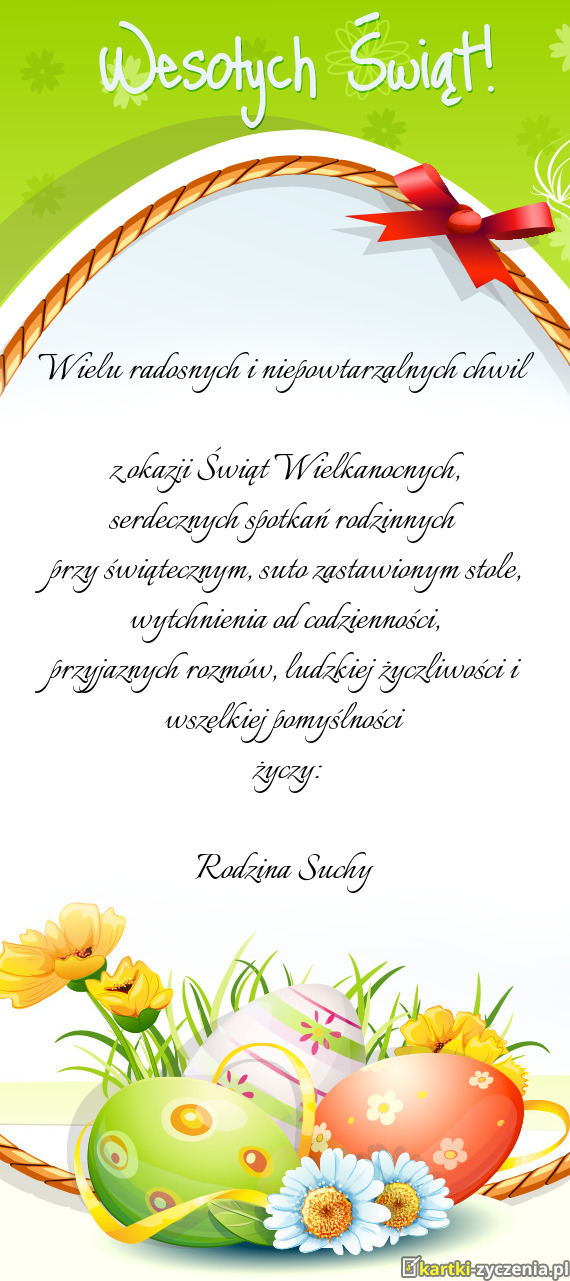 Wesołych Świąt!
Wielu radosnych i niepowtarzalnych chwil
z okazji Świąt Wielkanocnych,
serdecznych spotkań rodzinnych
przy świątecznym, suto zastawionym stole,
wytchnienia od codzienności,
przyjaznych rozmów, ludzkiej życzliwości i
wszelkiej pomyślności
życzy:
Rodzina Suchy
kartki-zyczenia.pl